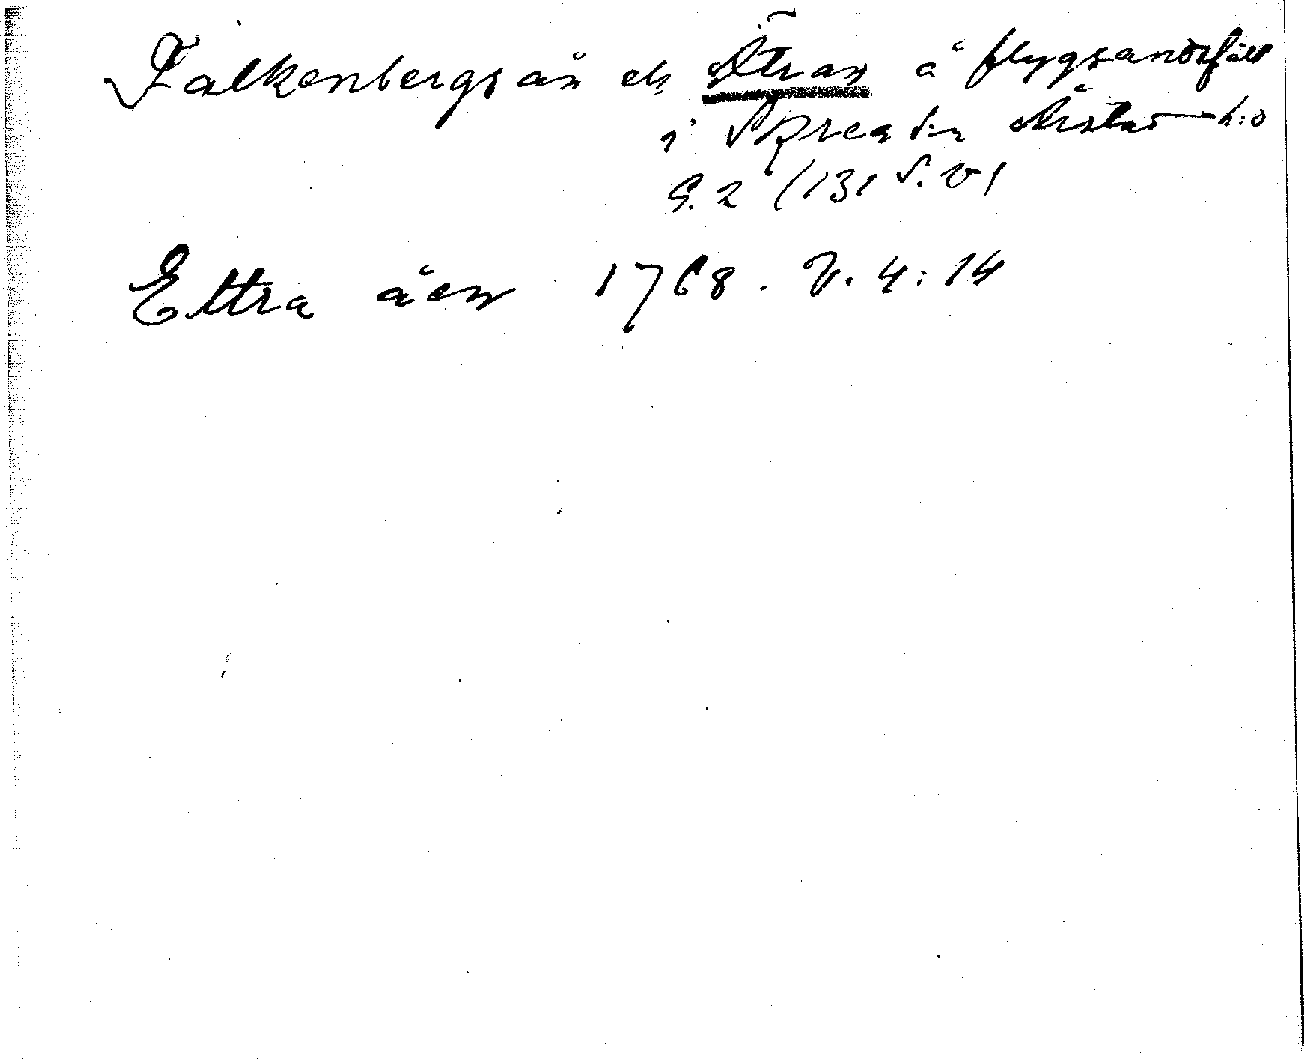 Falkenbergsån el. Ätran å flygsandsfält
i Skrea s:n Årstad h:d
G. 2 (131 S.V)
Ettra åen 1768. V. 4:14